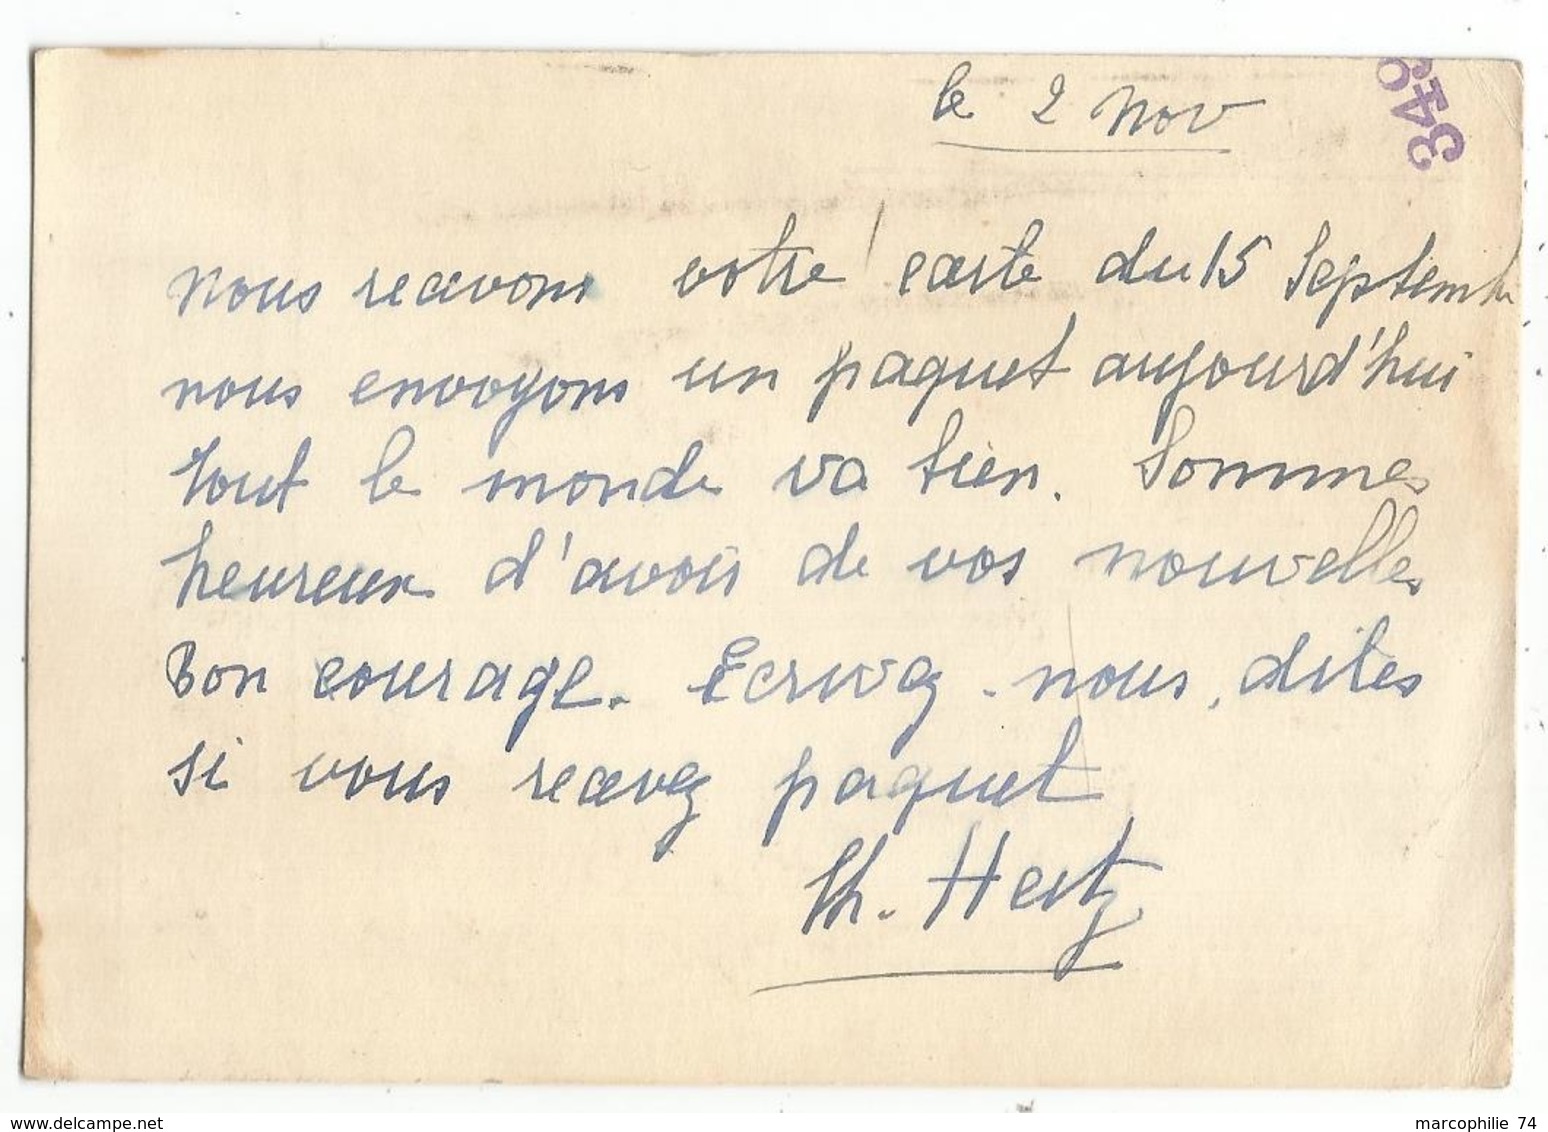 le 2 Nov
nous recevons votre carte du 15 Septembr
nous envoyons un paquet aujourd'hui
tout le monde va bien. Sommes
heureux d'avoir de vos nouvelles
Bon courage. Ecrivez-nous, dites
si vous recevez paquet
Th. Hertz
marcophilie 74